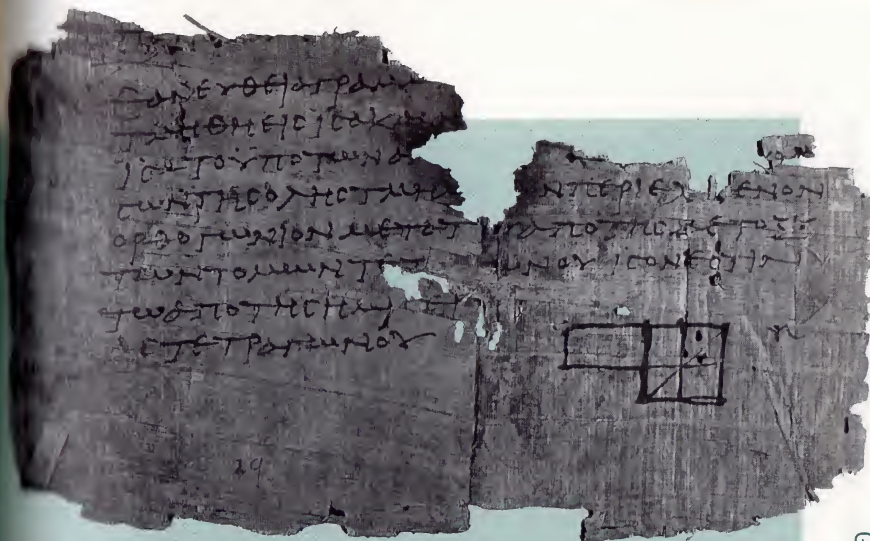 ΕΑΝΕΥΘΕΙΑΓΡΑΜ
ΤΜΗΘΗΕΙϹΙϹΑΚΑΙ
ΙϹΑΤΟΥΠΟΤΩΝΑ
ϹΩΝΤΗϹΟΛΗϹΤΜΗΜ ΝΠΕΡΙΕΧ ΕΝΟΝ
ΟΡΘΟΓΩΝΙΟΝΜΕΤΟΤ ΑΠΟΤΗϹΜΕΤΟΞΥ
ΤΩΝΤΟΜΩΝΤΕΤ ΩΝΟΥΙϹΟΝΕϹΤΙΝ
ΤΩΑΠΟΤΗϹΗΜΙ
ΑϹΤΕΤΡΑΓΩΝΟΥ
29